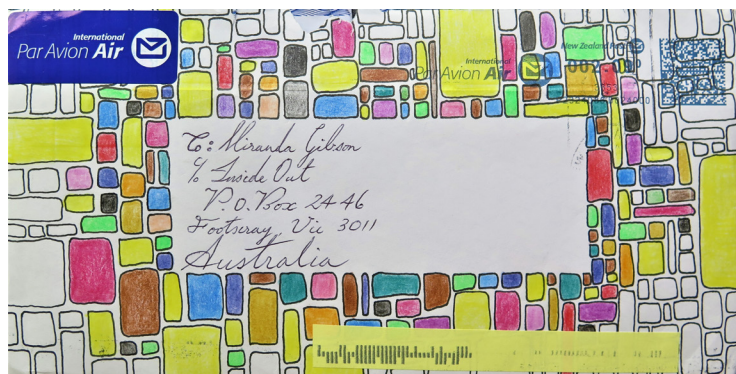 International
Par Avion Air
International
Par Avion Air
New Zealand Post
To: Miranda Gibson
c/o Inside Out
P.O. Box 2446
Footscray, Vic 3011
Australia